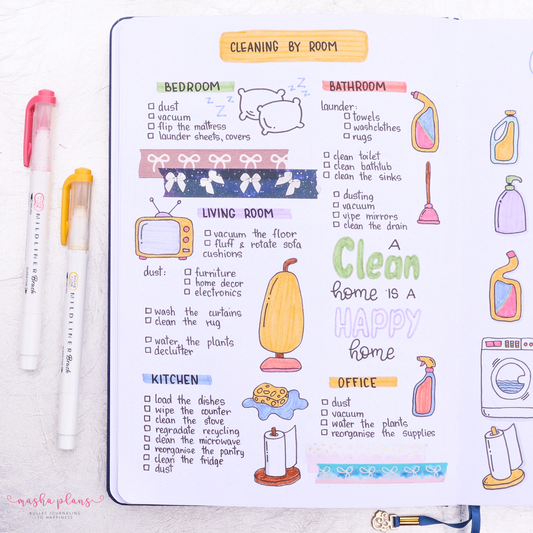 CLEANING BY ROOM
BEDROOM
dust
vacuum
flip the mattress
launder sheets, covers
zzz
zzz
LIVING ROOM
vacuum the floor
fluff & rotate sofa
cushions
dust:
furniture
home decor
electronics
wash the curtains
clean the rug
water the plants
declutter
KITCHEN
load the dishes
wipe the counter
clean the stove
regradate recycling
clean the microwave
reorganise the pantry
clean the fridge
dust
BATHROOM
launder:
towels
washclothes
rugs
clean toilet
clean bathtub
clean the sinks
dusting
vacuum
vipe mirrors
clean the drain
A
Clean
home IS A
HAPPY
home
OFFICE
dust
vacuum
water the plants
reorganise the supplies
MILDLINER
Brush
MILDLINER
Brush
masha plans
BULLET JOURNALING
TO HAPPINESS